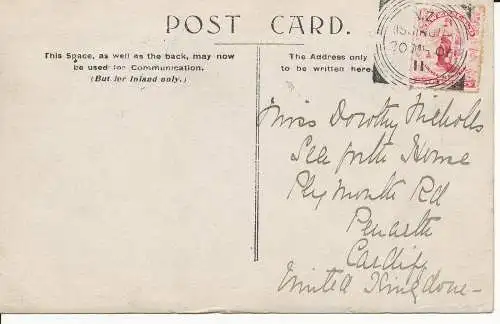 POST CARD.
This Space, as well as the back, may now
be used for Communication.
(But for Inland only.)
The Address only
to be written here.
N.Z.
11
Miss Dorothy Nicholls
Sea Home
Plymouth Rd
Penarth
Cardiff
United Kingdom